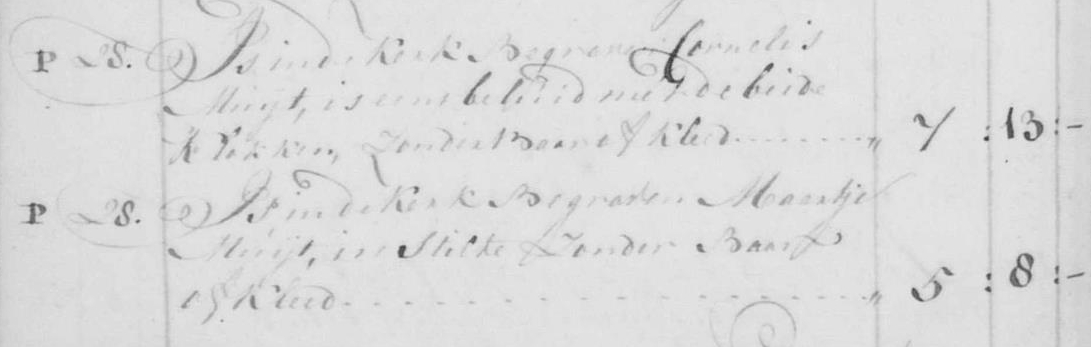 P 28. Is in de Kerk Begraven Cornelis
Muijt, is eens beluid met de beide
Klokken, Zonder Baar of Kleed " 7 : 13 : –
P 28. Is in de Kerk Begraven Maartje
Muijt, in Stilte & Zonder Baar
of Kleed " 5 : 8 : –